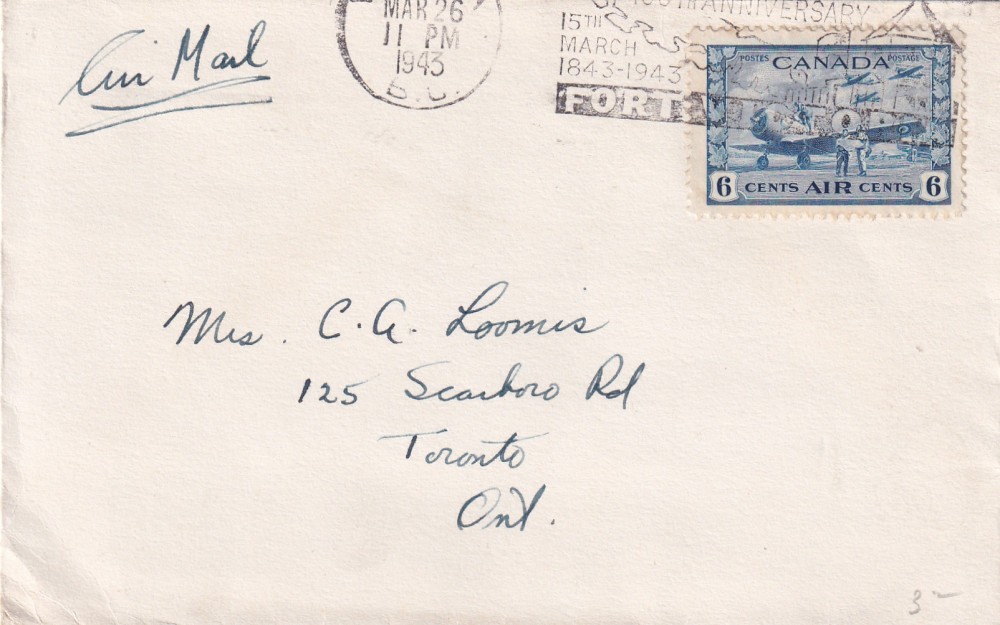 Air Mail
MAR 26
11 PM
1943
B.C.
100TH ANNIVERSARY
15TH
MARCH
1843-1943
FORT
POSTES CANADA POSTAGE
6 CENTS AIR CENTS 6
Mrs. C.A. Loomis
125 Scarboro Rd
Toronto
Ont.
3-